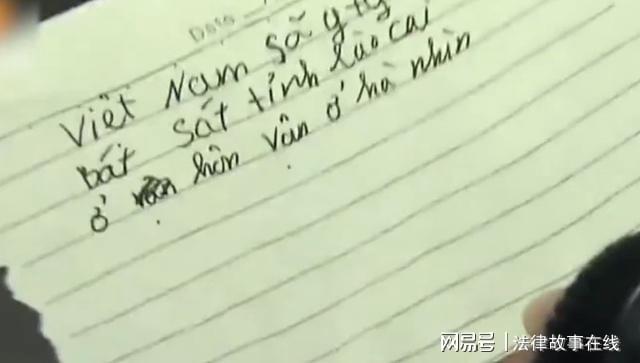 Date
Việt Nam Sã y tý
bát sát tỉnh lào cai
ở hôn vân ở hà nhìn
网易号 | 法律故事在线